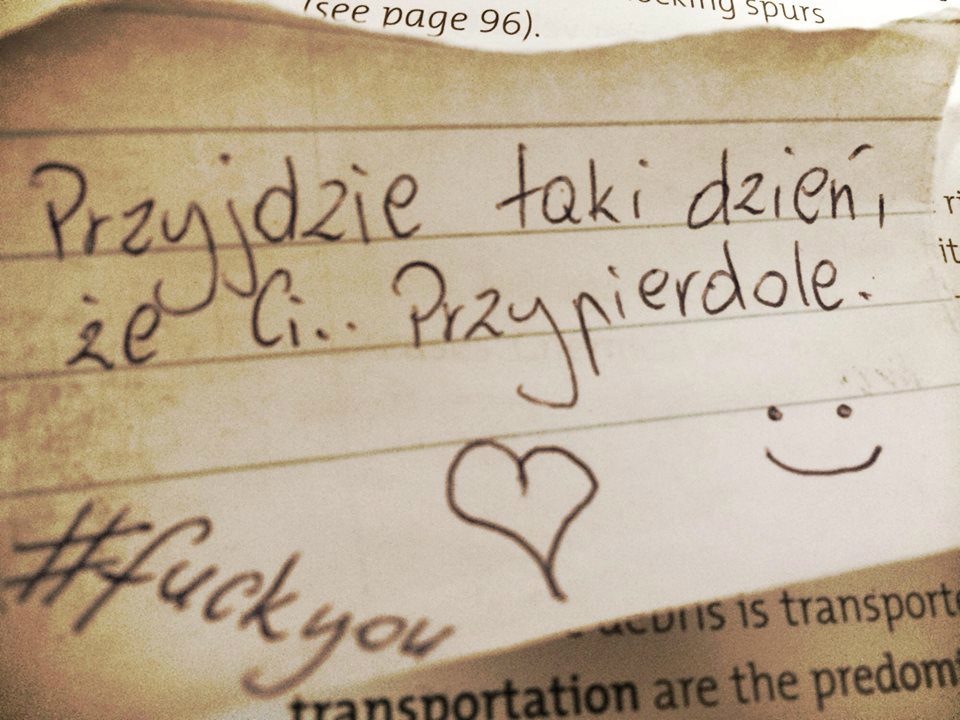 (see page 96).
spurs
Przyjdzie taki dzień,
że Ci.. Przypierdole.
#fuckyou
is transporte
transportation are the predom